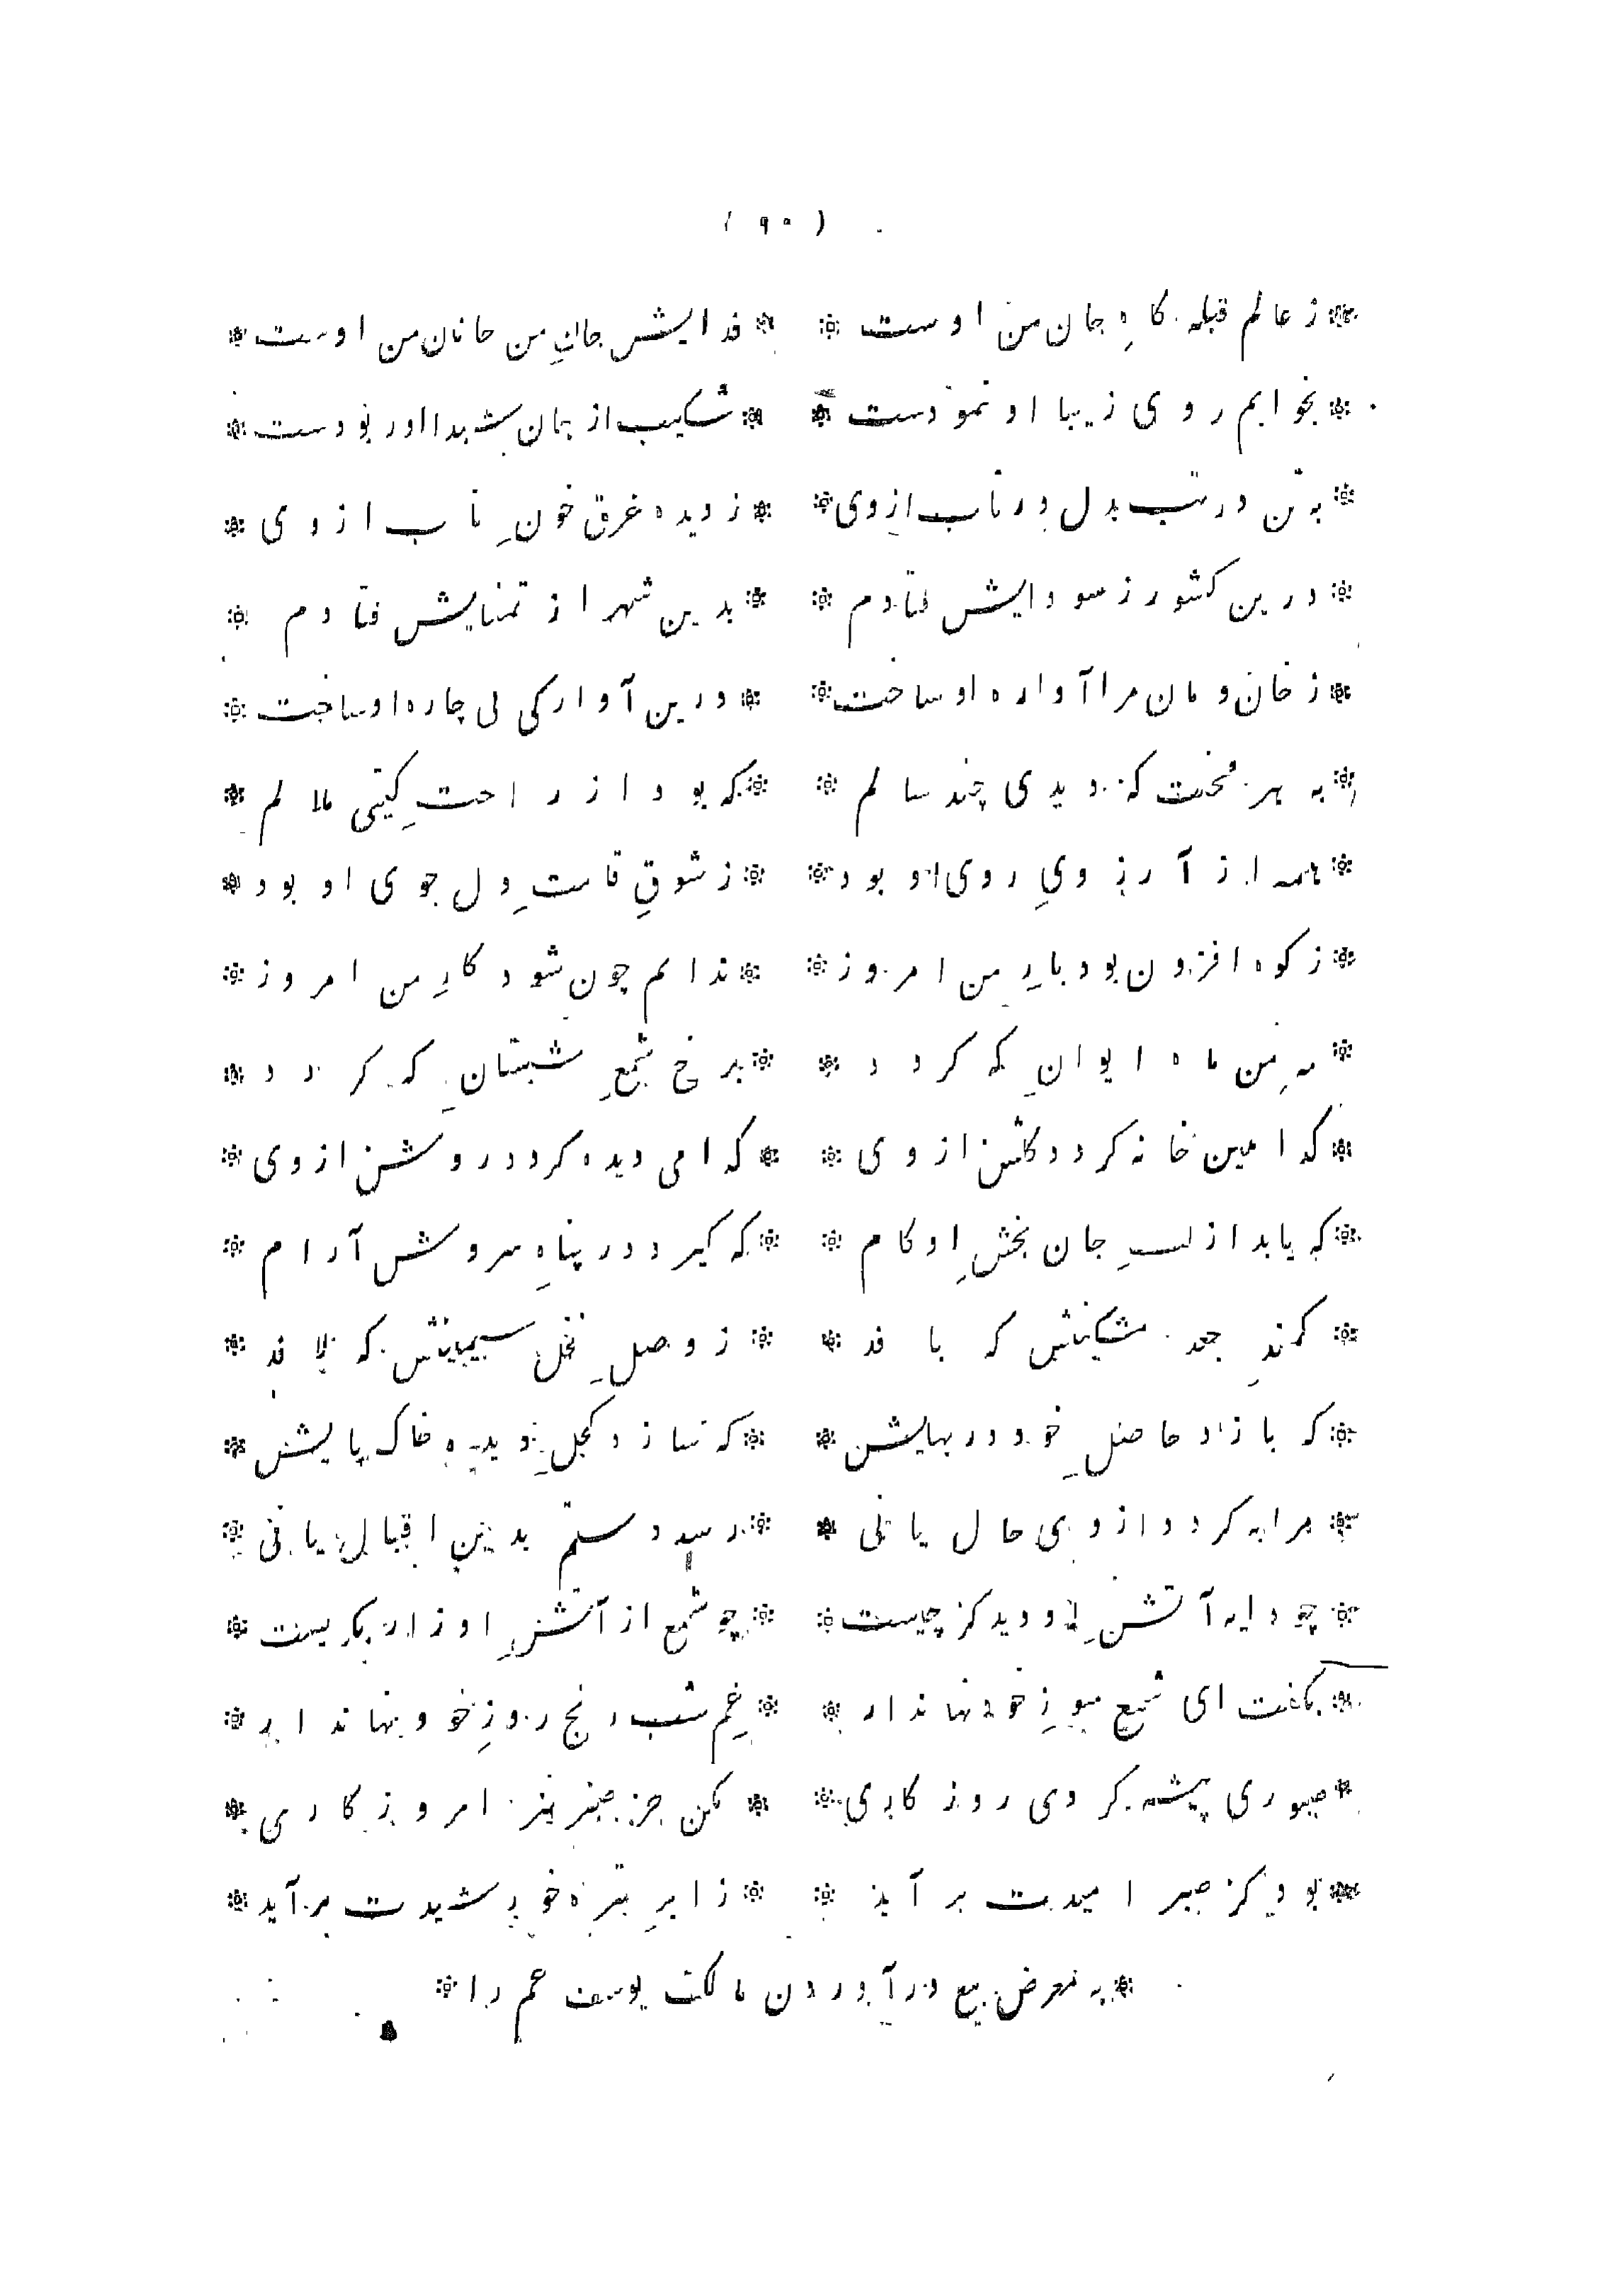 ( ۹۰ )
* ز عالم قبله گاهِ جان من اوست * * فدایش جانِ من جانان من اوست *
* بخوابم روی زیبا او نمودست * * شکیب از جان شیدا او ربودست *
* به تن در تب بدل در تاب ازوی * * ز دیده غرق خونِ ناب ازوی *
* درین کشور ز سودایش فتادم * * بدین شهر از تمنایش فتادم *
* ز خان و مان مرا آواره او ساخت * * درین آوارگی بی چاره او ساخت *
* به هر محنت که دیدی چند سالم * * که بود از راحتِ گیتی ملالم *
* همه از آرزویِ روی او بود * * ز شوقِ قامتِ دل جوی او بود *
* ز کوه افزون بود بارِ من امروز * * ندانم چون شود کارِ من امروز *
* مهِ من ماه ایوانِ که گردد * * برخ شمعِ شبستانِ که گردد *
* کدامین خانه گردد گلشن ازوی * * کدامی دیده گردد روشن ازوی *
* که یابد از لبِ جان بخشِ او کام * * که گیرد در پناهِ سروش آرام *
* کمندِ جعد مشکینش که بافد * * ز وصلِ نخل سیمینش که لافد *
* که بازد حاصلِ خود در بهایش * * که سازد کحلِ دیده خاک پایش *
* مرا به گردد از وی حال یا نی * * رسد دستم بدین اقبال یا نی *
* چو دایه آتشِ او دید کز چیست * * چو شمع از آتشِ او زار بگریست *
* بگفت ای شمع سوزِ خود نهان دار * * غمِ شب رنج روزِ خود نهان دار *
* صبوری پیشه کردی روزگاری * * مکن جز صبر نیز امروز کاری *
* بود کز صبر امیدت برآید * * ز ابرِ تیره خورشیدت برآید *
* به معرض بیع در آوردن مالک یوسف عم را *